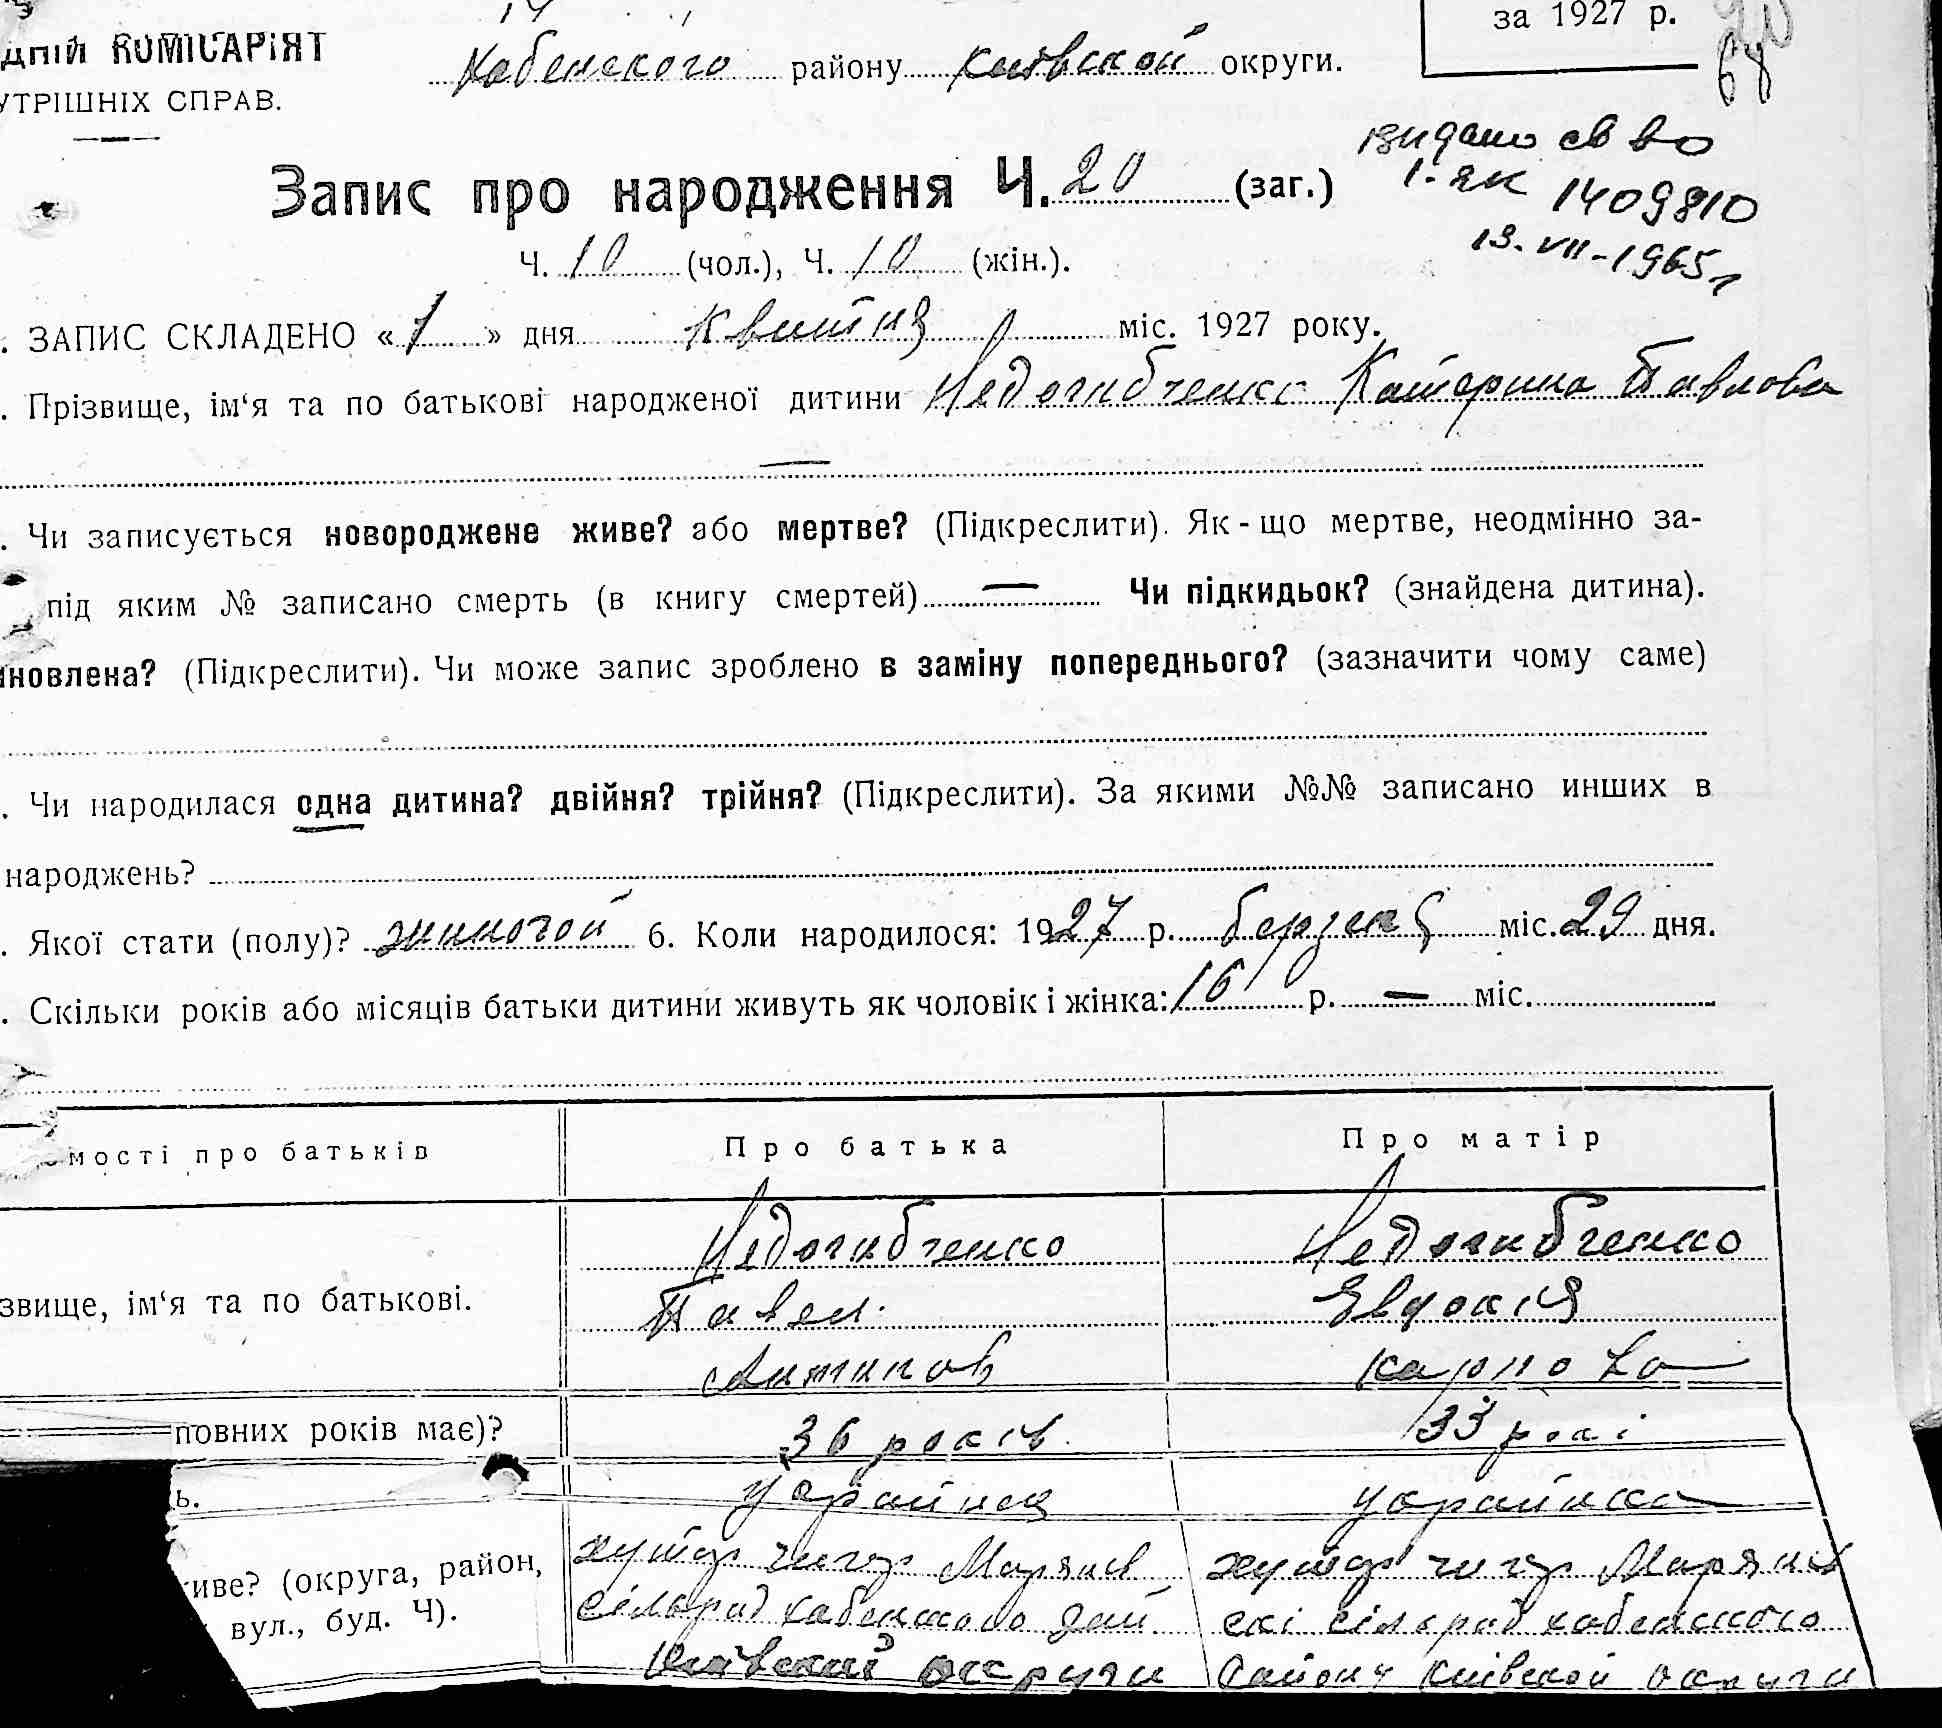 за 1927 р.
КОМІСАРІЯТ
Хабенского району Київской округи.
УТРІШНІХ СПРАВ.
видано св во
Запис про народження Ч. 20 (заг.)
1-ЯК 1409810
13-VII-1965 г
Ч. 10 (чол.), Ч. 10 (жін.).
. ЗАПИС СКЛАДЕНО «1» дня квитня міс. 1927 року.
. Прізвище, ім‘я та по батькові народженої дитини Недогибченко Катерина Павлова
. Чи записується новороджене живе? або мертве? (Підкреслити). Як-що мертве, неодмінно за-
під яким № записано смерть (в книгу смертей) — Чи підкидьок? (знайдена дитина).
новлена? (Підкреслити). Чи може запис зроблено в заміну попереднього? (зазначити чому саме)
. Чи народилася одна дитина? двійня? трійня? (Підкреслити). За якими №№ записано инших в
народжень?
. Якої стати (полу)? жиночой 6. Коли народилося: 1927 р. березня міс. 29 дня.
. Скільки років або місяців батьки дитини живуть як чоловік і жінка: 16 р. — міс.
мості про батьків Про батька Про матір
Недогибченко Недогибченко
звище, ім‘я та по батькові. Павел Явдокія
Антинов Карпова
повних років має)? 36 років 33 рокі
ь. Украйнец Украйнка
хутор чигор Марянов хутор чигор Марянов
иве? (округа, район, сільрад хабенского рай скі сільрад хабенского
вул., буд. Ч). Київской округи району київской округи